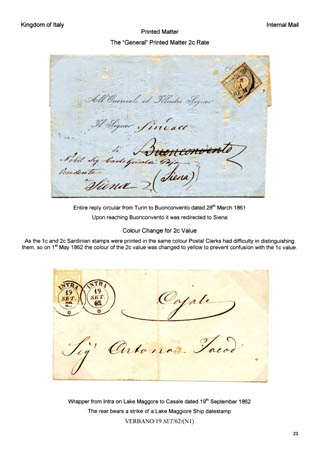 Kingdom of Italy
Internal Mail
Printed Matter
The "General" Printed Matter 2c Rate
All'Onorevole ed Illustre Signor
Il Signor Sindaco
di Buonconvento
(Siena)
Siena
Entire reply circular from Turin to Buonconvento dated 28th March 1861
Upon reaching Buonconvento it was redirected to Siena
Colour Change for 2c Value
As the 1c and 2c Sardinian stamps were printed in the same colour Postal Clerks had difficulty in distinguishing
them, so on 1st May 1862 the colour of the 2c value was changed to yellow to prevent confusion with the 1c value.
INTRA
19
SET.
62
INTRA
19
SET.
62
Casale
Sigr
Wrapper from Intra on Lake Maggoire to Casale dated 19th September 1862
The rear bears a strike of a Lake Maggiore Ship datestamp
VERBANO/19 SET/62/(N1)
23